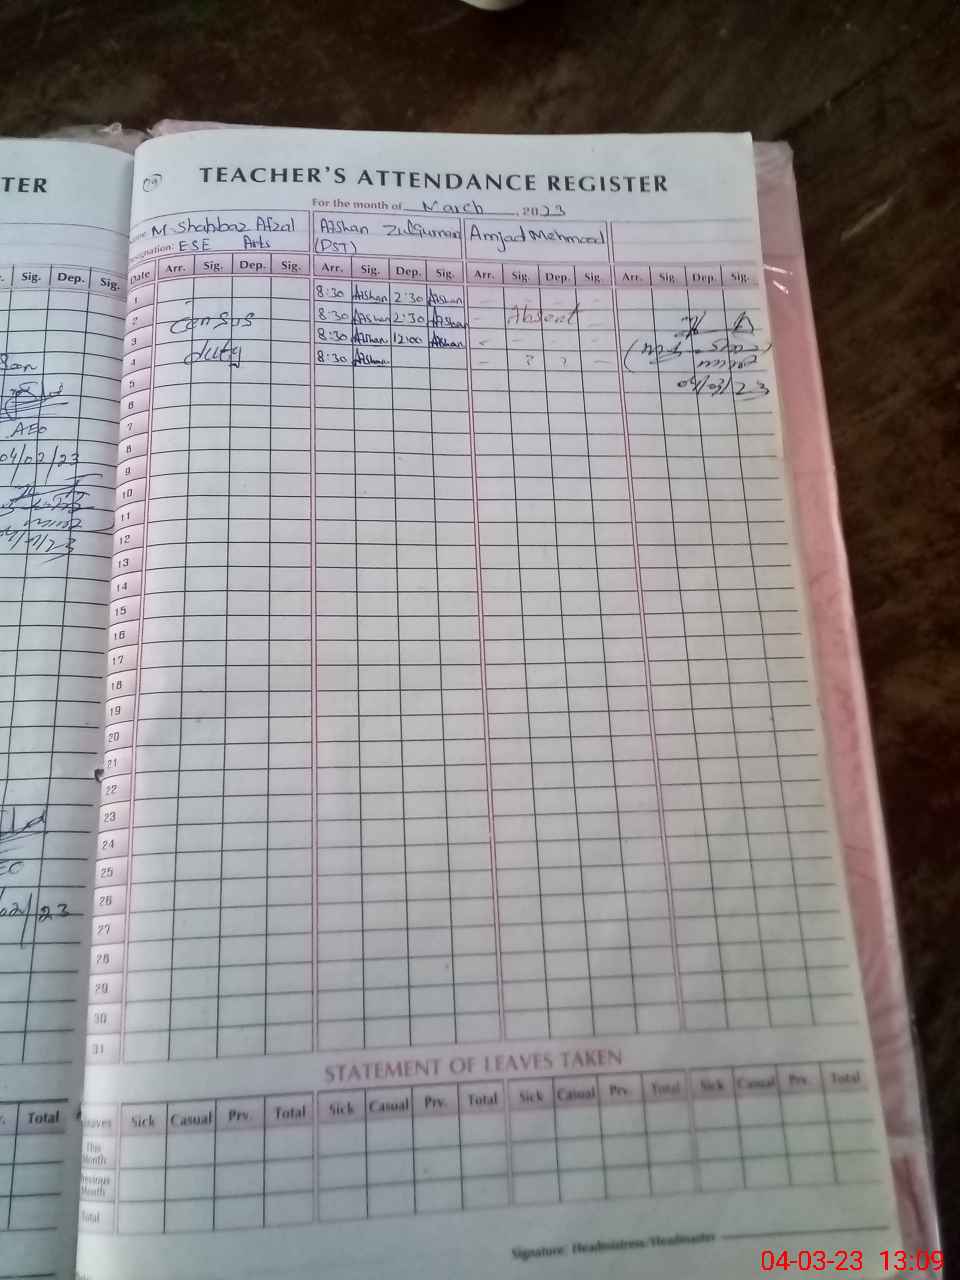 TER
Sig. Dep. Sig.
AEO
04/02/23
Total
TEACHER'S ATTENDANCE REGISTER
For the month of March, 2023
M. Shahbaz Afzal Afshan Zulqurnan Amjad Mehmood
Designation: ESE Arts (PST)
Date Arr. Sig. Dep. Sig. Arr. Sig. Dep. Sig. Arr. Sig. Dep. Sig. Arr. Sig. Dep. Sig.
1 8:30 Afshan 2:30 Afshan - - - -
2 census 8:30 Afshan 2:30 Afshan - Absent -
3 8:30 Afshan 12:00 Afshan - - - -
4 duty 8:30 Afshan - ? ? -
5 04/03/23
6
7
8
9
10
11
12
13
14
15
16
17
18
19
20
21
22
23
24
25
26
27
28
29
30
31
STATEMENT OF LEAVES TAKEN
Leaves Sick Casual Prv. Total Sick Casual Prv. Total Sick Casual Prv. Total Sick Casual Prv. Total
This Month
Previous Month
Total
Signature: Headmistress/Headmaster
04-03-23 13:09